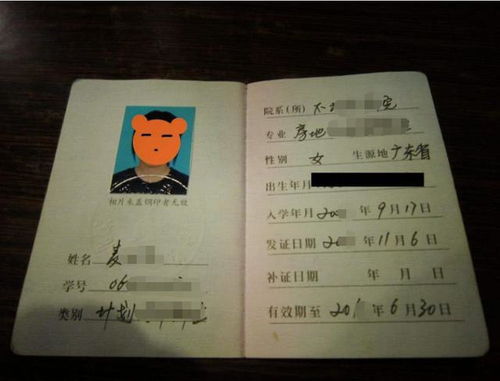 相片未盖钢印者无效
姓名 麦
学号 06
类别 计划
院系(所)
专业 房地
性别 女 生源地 广东省
出生年月
入学年月 20 年9月17日
发证日期 20 年11月6日
补证日期 年 月 日
有效期至 20 年6月30日